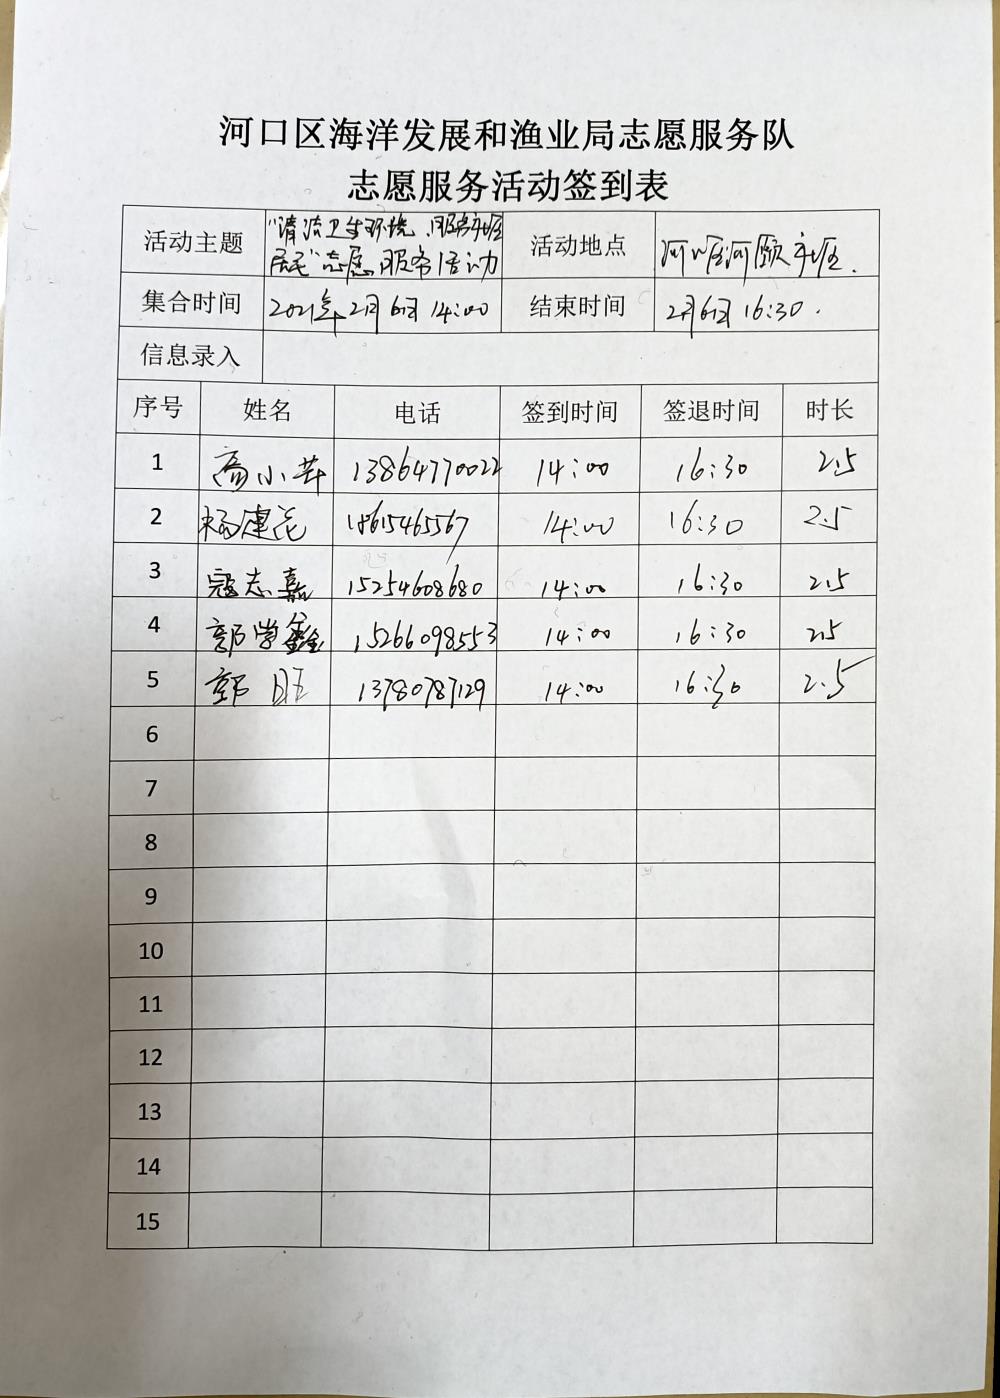 河口区海洋发展和渔业局志愿服务队
志愿服务活动签到表
活动主题 "清洁卫生环境、服务社区居民"志愿服务活动 活动地点
集合时间 2021年2月6日 14:00 结束时间 2月6日 16:30.
信息录入
序号 姓名 电话 签到时间 签退时间 时长
1 高小芊 13864770022 14:00 16:30 2.5
2 杨建花 18615465567 14:00 16:30 2.5
3 寇志嘉 15254608680 14:00 16:30 2.5
4 郭学鑫 15266098553 14:00 16:30 2.5
5 郭旺 13780787129 14:00 16:30 2.5
6
7
8
9
10
11
12
13
14
15